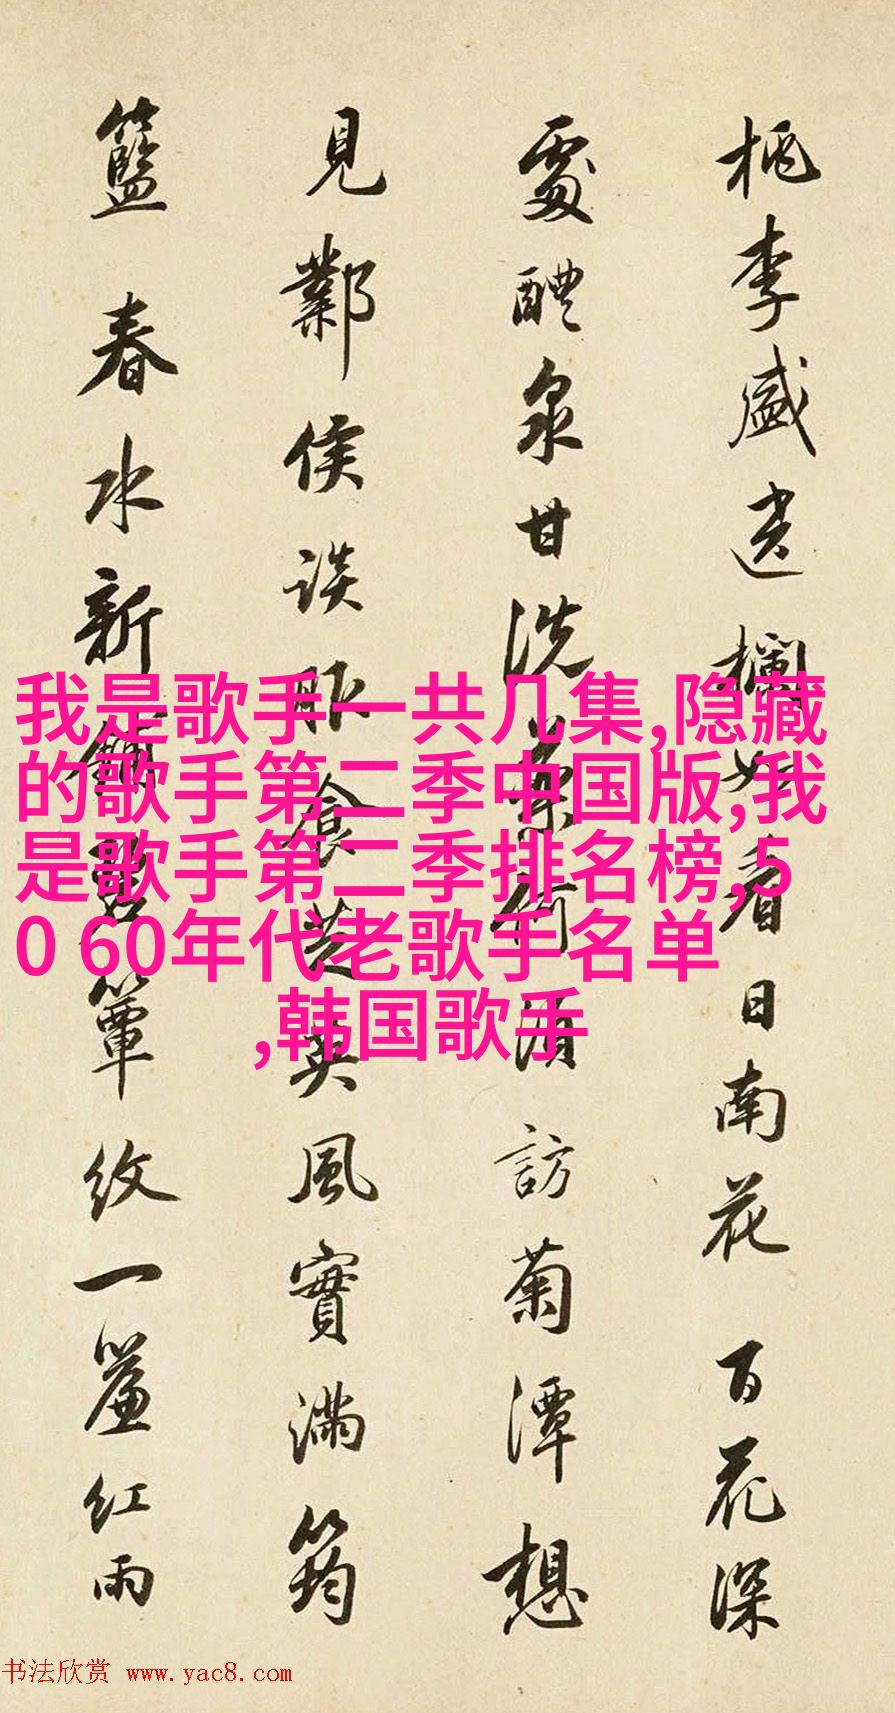 桃李盛遺欄如看日南花百花深
處醴泉甘洗藥何須訪菊潭想
見鄴侯談服食芝英風實滿筠
籃春水新鋪碧簟紋一簾紅雨
我是歌手一共几集,隐藏
的歌手第二季中国版,我
是歌手第三季排名榜,5
0 60年代老歌手名单
,韩国歌手
书法欣赏 www.yac8.com